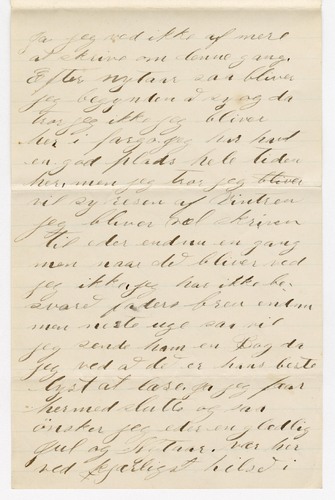 Ja jeg ved ikke af mere
at skrive om denne gang.
Efter nytaar saa bliver
jeg begynten å sy og da
tror jeg ikke jeg bliver
her i fargo jeg har had
en god plads hele tiden
her men jeg tror jeg bliver
vil sy resen af Vintren
jeg bliver vel skriven
til eder endnu en gang
men naar de bliver ved
jeg ikke jeg har ikke be
svared faders brev endnu
men neste uge saa vil
jeg sende ham en Dag da
jeg ved at de er hans beste
lyst at læse ja jeg faar
hermed slutte og saa
ønsker jeg eder en glædlig
jul og nytaar. vær her
ved kjærligst hilsed i